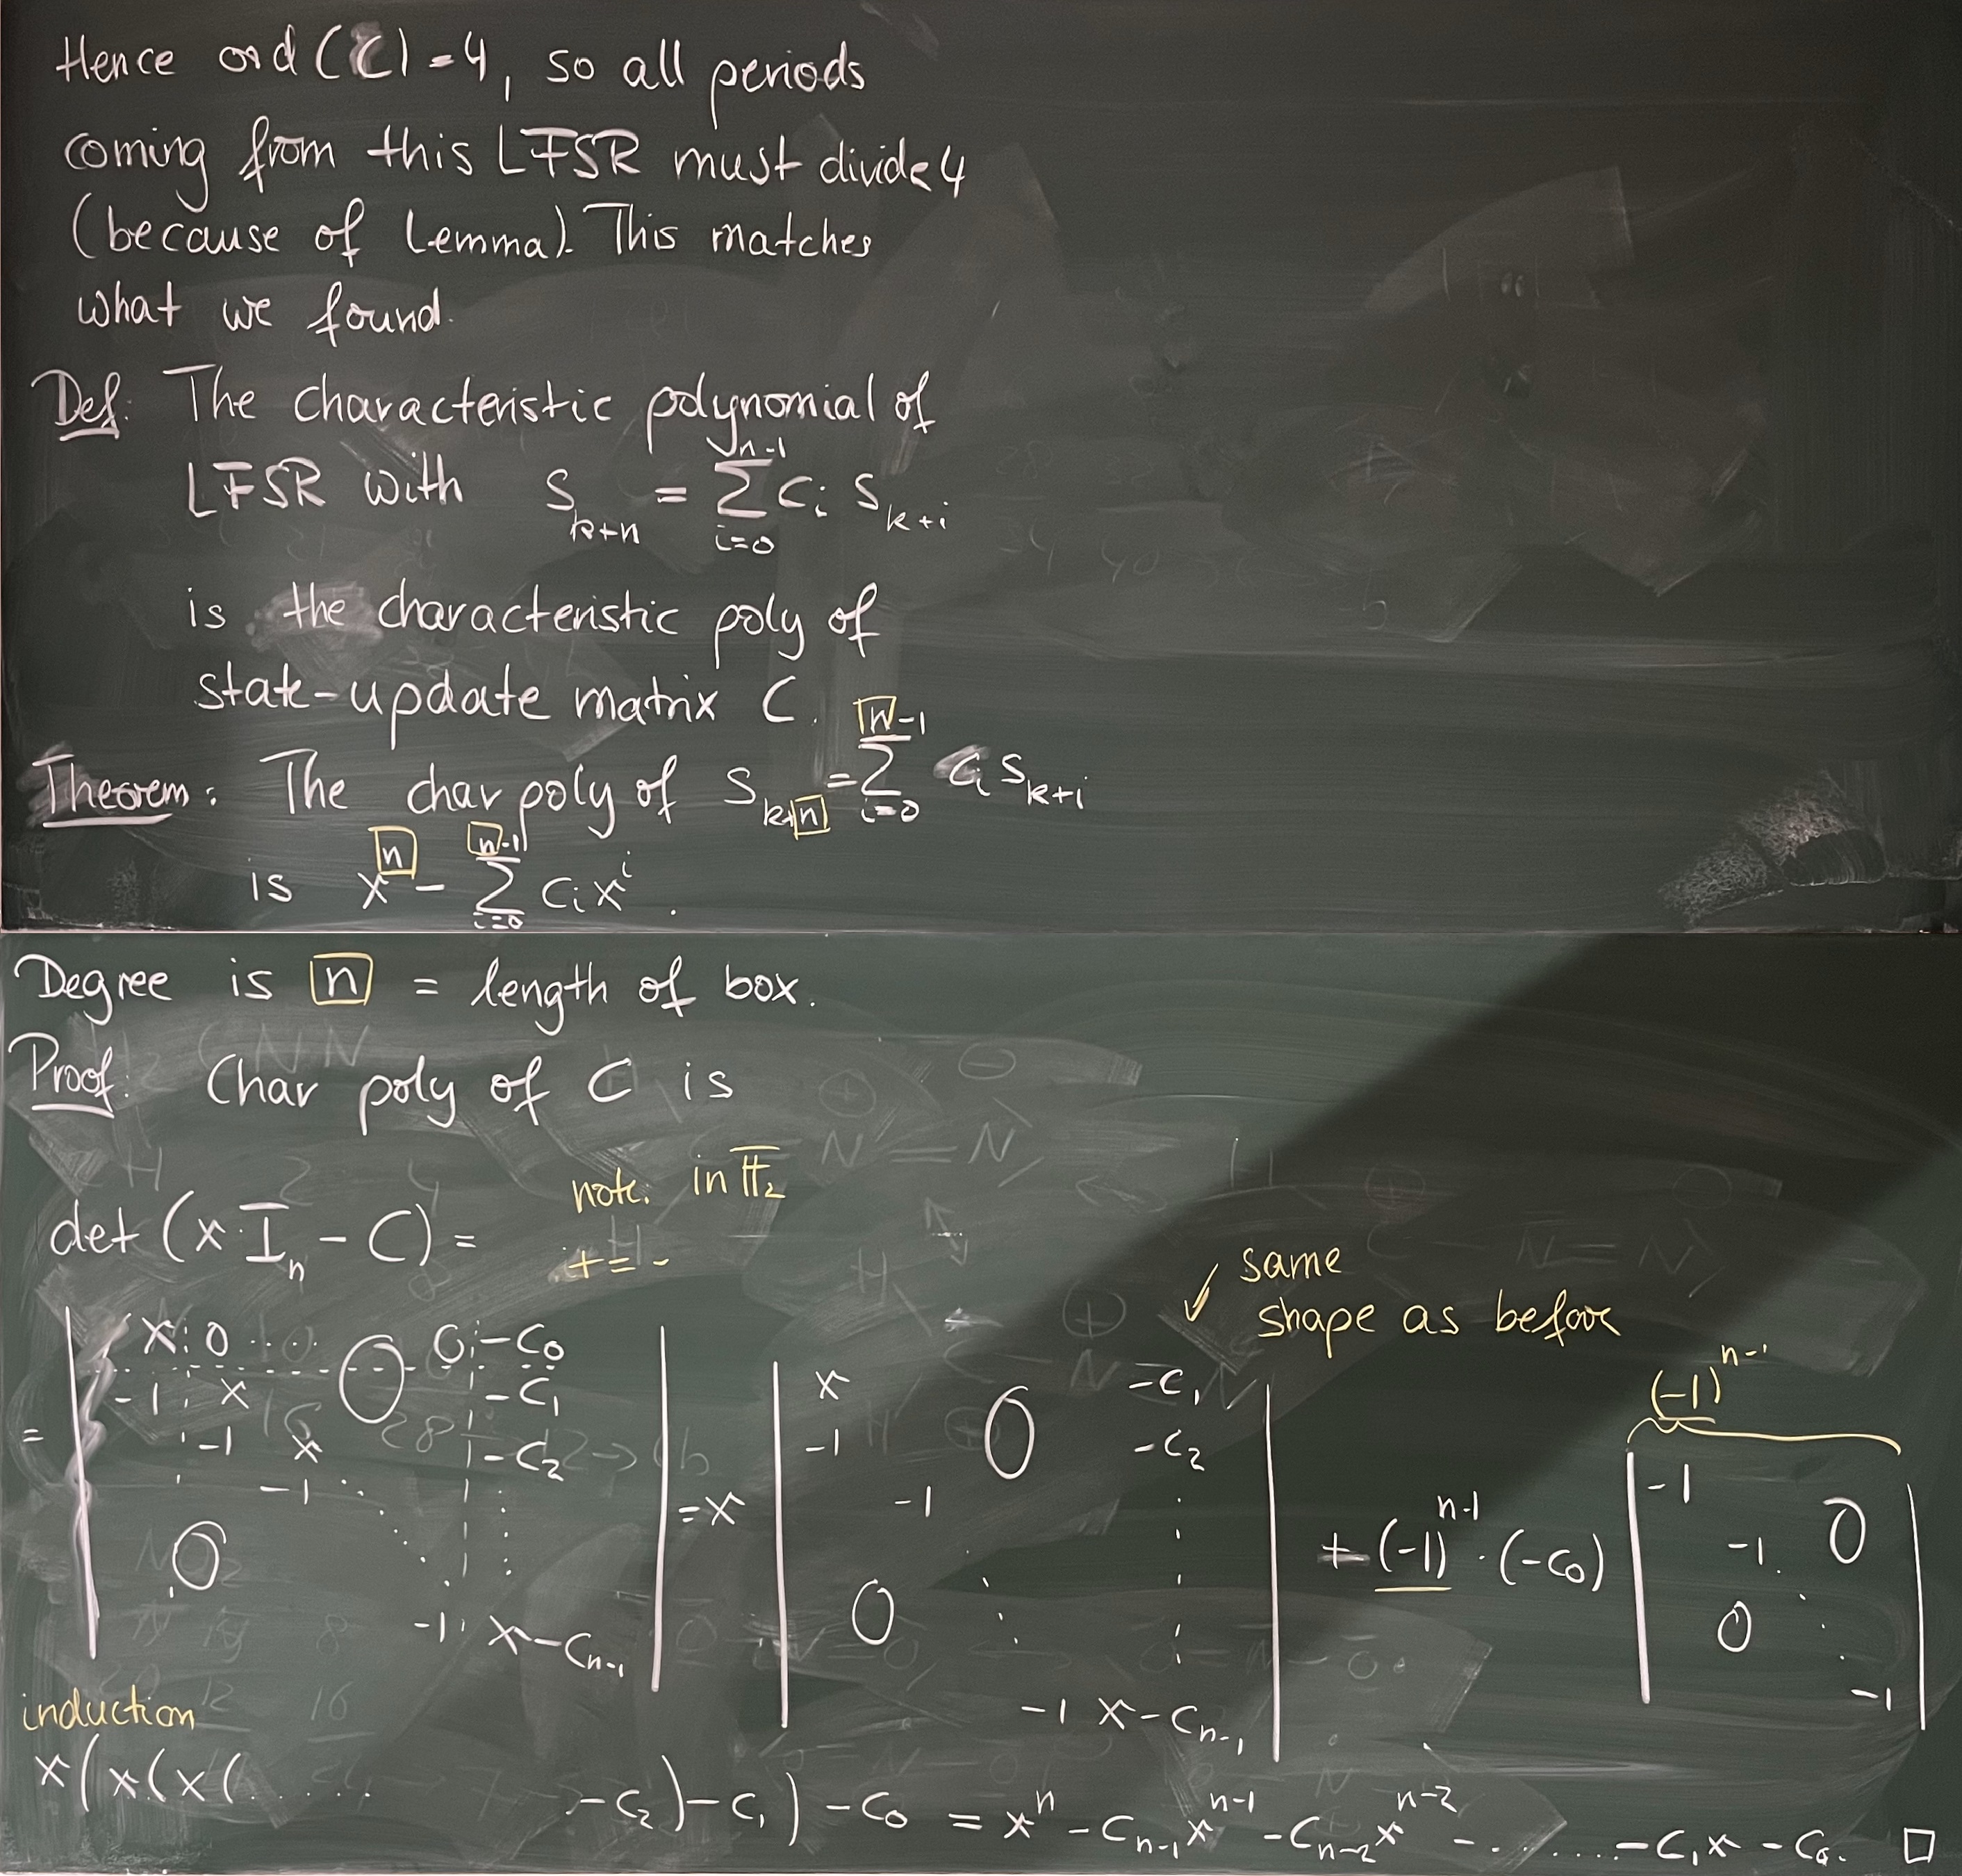 Hence ord(C)=4, so all periods
coming from this LFSR must divide 4
(because of Lemma). This matches
what we found.
Def: The characteristic polynomial of
LFSR with s_{k+n} = ∑_{i=0}^{n-1} c_i s_{k+i}
is the characteristic poly of
state-update matrix C.
Theorem: The char poly of s_{k+n} = ∑_{i=0}^{n-1} c_i s_{k+i}
is x^n - ∑_{i=0}^{n-1} c_i x^i.
Degree is n = length of box.
Proof: Char poly of C is
note: in 𝔽_2
det(x·I_n - C) =
+ = -
same
shape as before
= | x 0 ... 0 0 -c_0
-1 x -c_1
-1 x -c_2
-1 ⋱ ⋮
0
-1 x-c_{n-1} |
= x | x 0 -c_1
-1 -c_2
-1 ⋮
0 ⋱
-1 x-c_{n-1} |
+ (-1)^{n-1} · (-c_0)
(-1)^{n-1}
| -1 0
-1
0 ⋱
-1 |
induction
x(x(x(...... -c_2)-c_1)-c_0 = x^n - c_{n-1}x^{n-1} - c_{n-2}x^{n-2} - ...... - c_1x - c_0. □